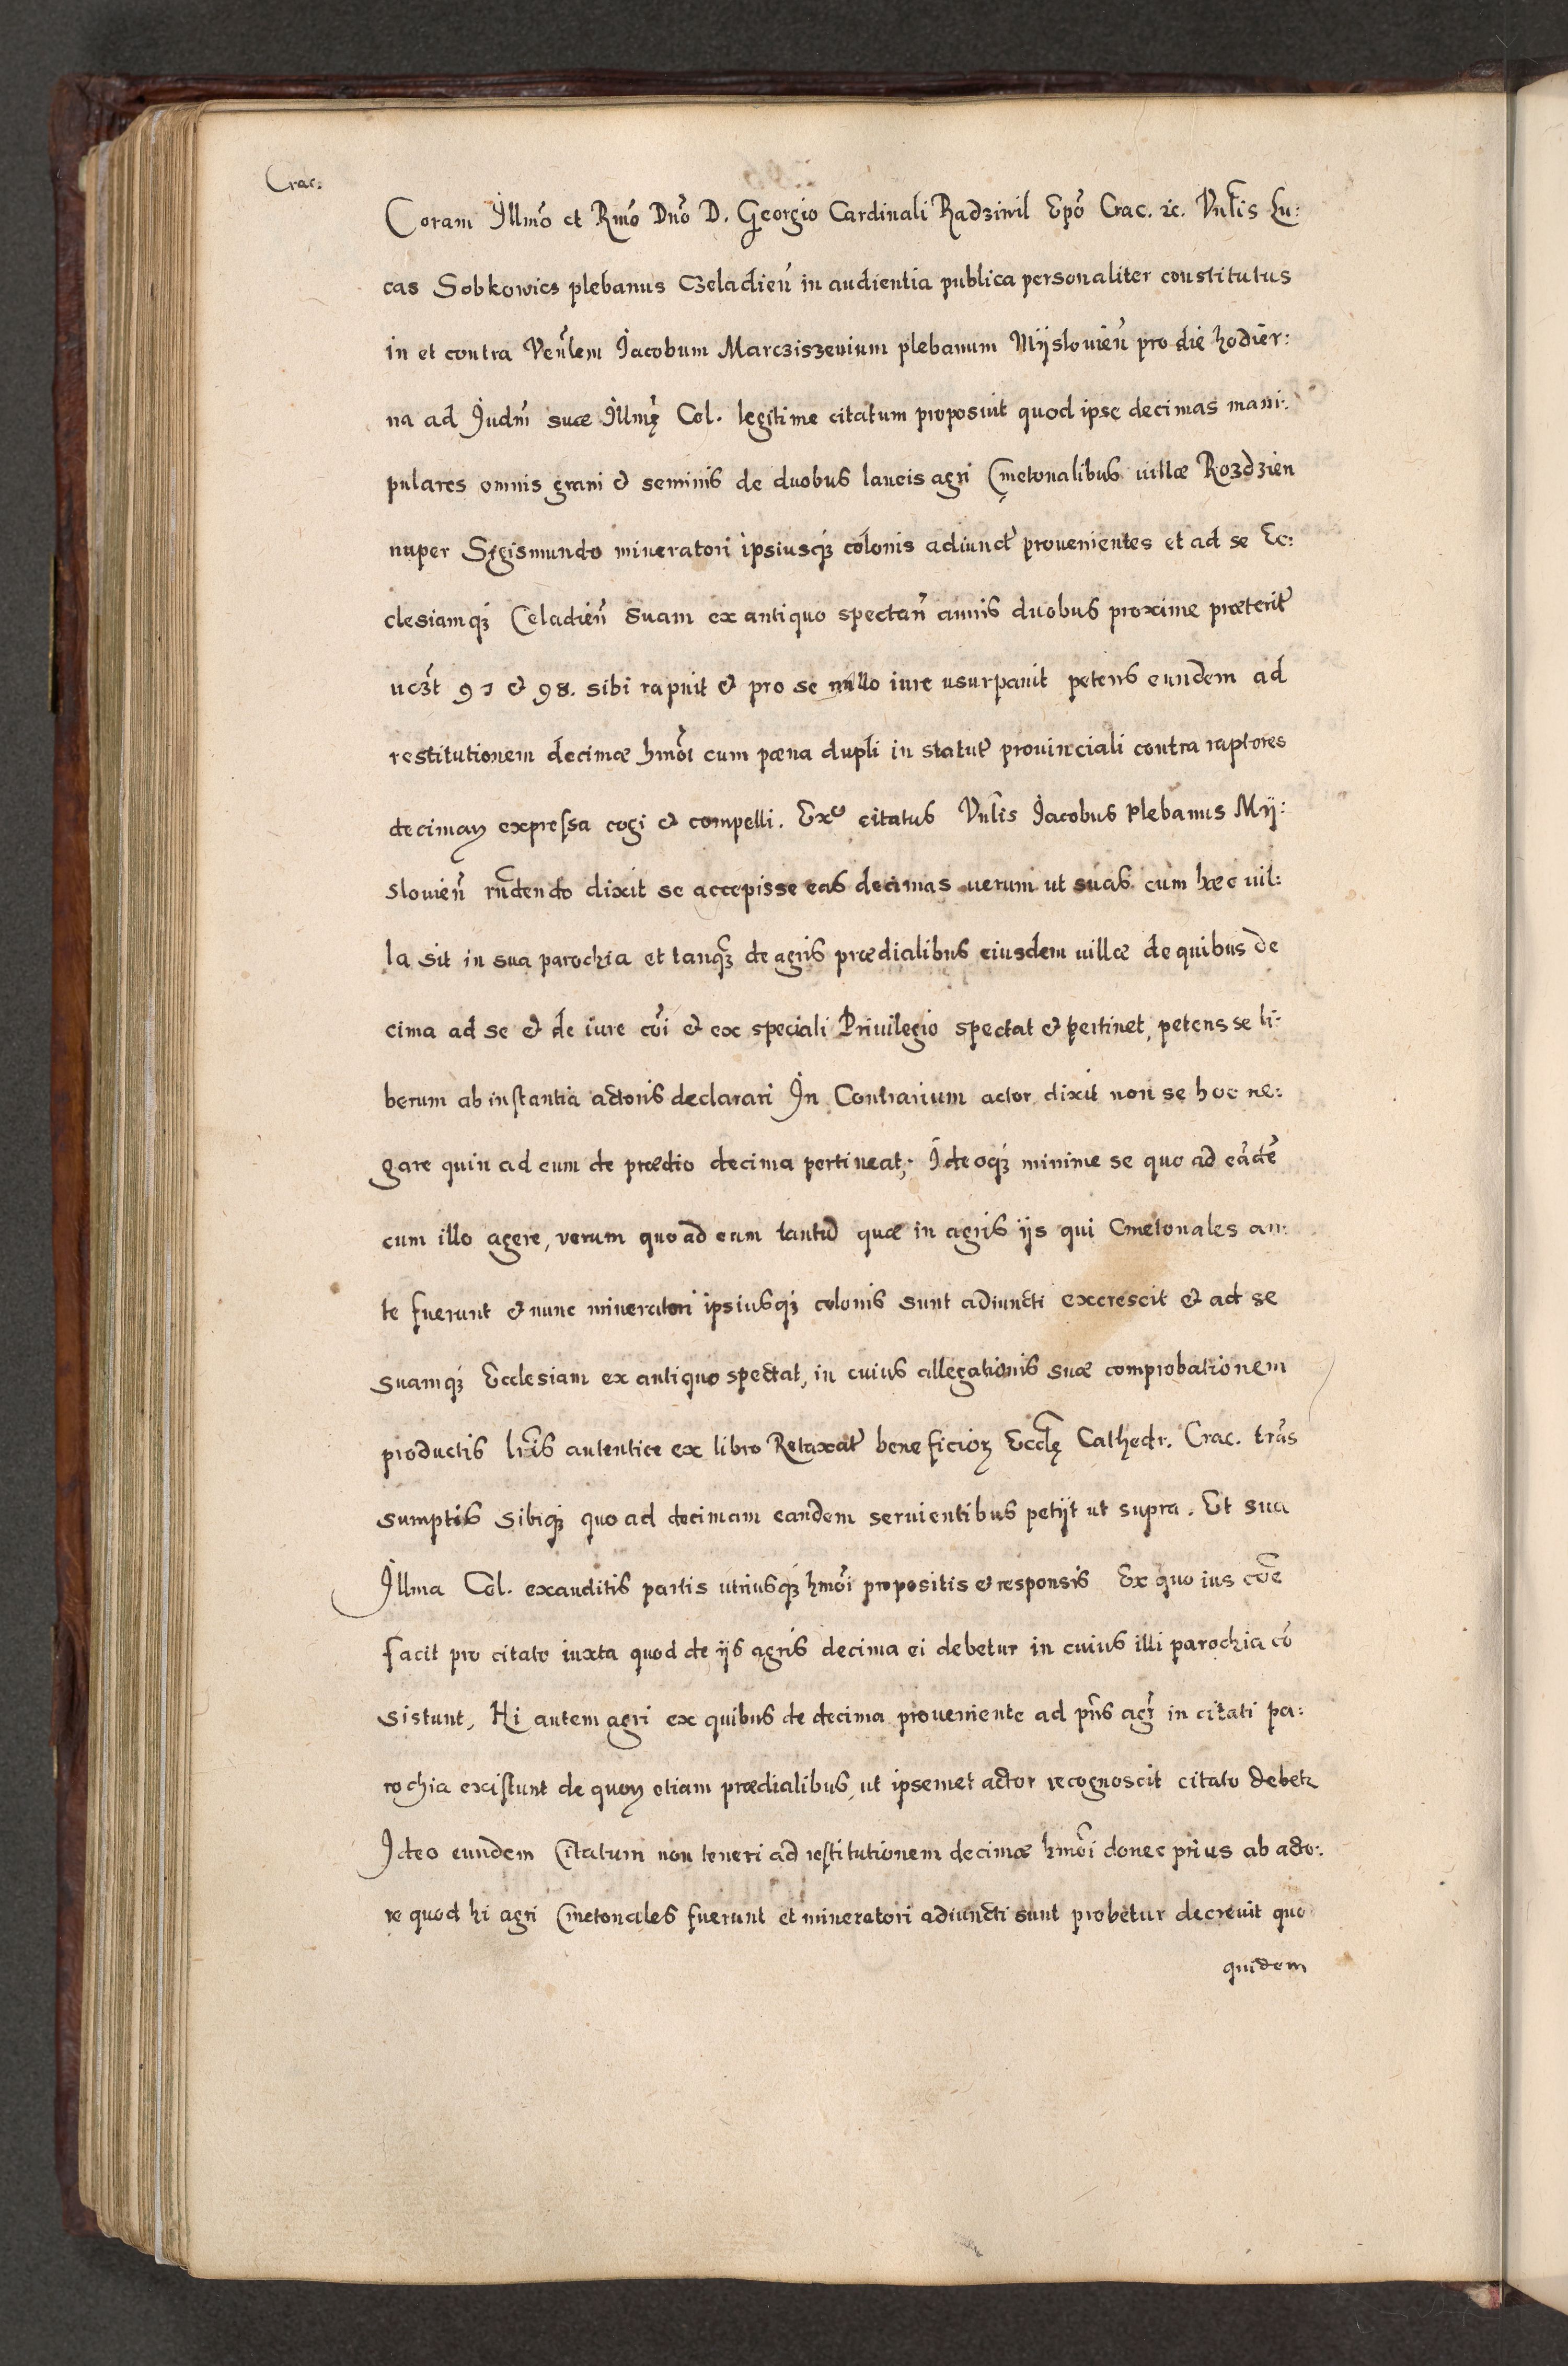 Crac:
Coram Illmo et Rmo Dno D. Georgio Cardinali Radziwil Epo Crac. etc. Vnlis Lu:
cas Sobkowics plebanus Czeladien in audientia publica personaliter constitutus
in et contra Venlem Jacobum Marcziszevium plebanum Mijslovien pro die hodier:
na ad Judm suæ Illmę Cel. legitime citatum proposuit quod ipse decimas mani:
pulares omnis grani & seminis de duobus laneis agri Cmetonalibus villæ Rozdzien
nuper Sigismundo mineratori ipsiusq; colonis adiunct provenientes et ad se Ec:
clesiamq; Celadien suam ex antiquo spectan annis duobus proxime præterit
uczt 97 & 98. sibi rapuit & pro se nullo iure usurpauit petens eundem ad
restitutionem decimæ hmoi cum pæna dupli in statut prouinciali contra raptores
decimaꝝ expressa cogi & compelli. Exo citatus Vnlis Jacobus plebanus Mij:
slouien rndendo dixit se accepisse eas decimas uerum ut suas cum hæc uil:
la sit in sua parochia et tanq; de agris prædialibus eiusdem uillæ de quibus de
cima ad se & de iure coi & ex speciali Priuilegio spectat & pertinet, petens se li:
berum ab instantia actoris declarari In Contrarium actor dixit non se hoc ne:
gare quin ad eum de prædio decima pertineat, Ideoq; minime se quo ad eãdẽ
cum illo agere, verum quo ad eam tantũ quæ in agris ijs qui Cmetonales an:
te fuerunt & nunc mineratori ipsiusq; colonis sunt adiuncti excrescit & ad se
suamq; Ecclesiam ex antiquo spectat, in cuius allegationis suæ comprobationem
productis lris autentice ex libro Retaxat beneficioꝝ Eccłę Cathedr. Crac. trãs
sumptis sibiq; quo ad decimam eandem seruientibus petijt ut supra. Et sua
Illma Cel. exauditis partis utriusq; hmoi propositis & responsis Ex quo ius cõe
facit pro citato iuxta quod de ijs agris decima ei debetur in cuius illi parochia cõ
sistunt, Hi autem agri ex quibus de decima proueniente ad pns agr in citati pa:
rochia existunt de quoꝝ etiam prædialibus, ut ipsemet actor recognoscit citato debetr
Ideo eundem Citatum non teneri ad restitutionem decimæ hmoi donec prius ab acto:
re quod hi agri Cmetonales fuerunt et mineratori adiuncti sunt probetur decreuit quo
quidem